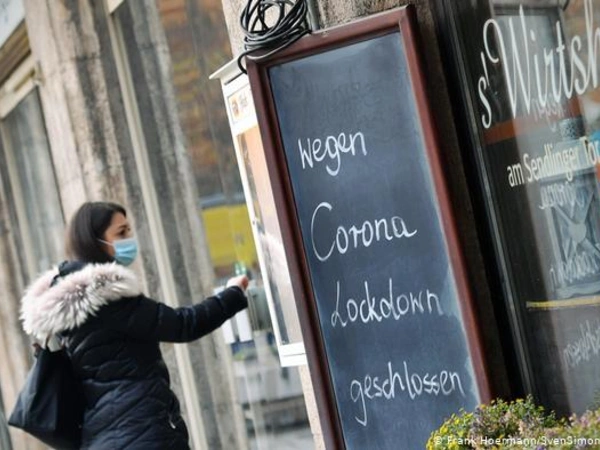 wegen
Corona
Lockdown
geschlossen
s'Wirtsh
am Sendlinger Tor
© Frank Hoermann/SvenSimon